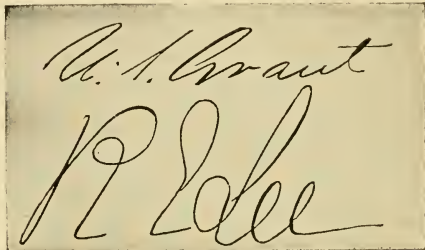 U. S. Grant
R E Lee